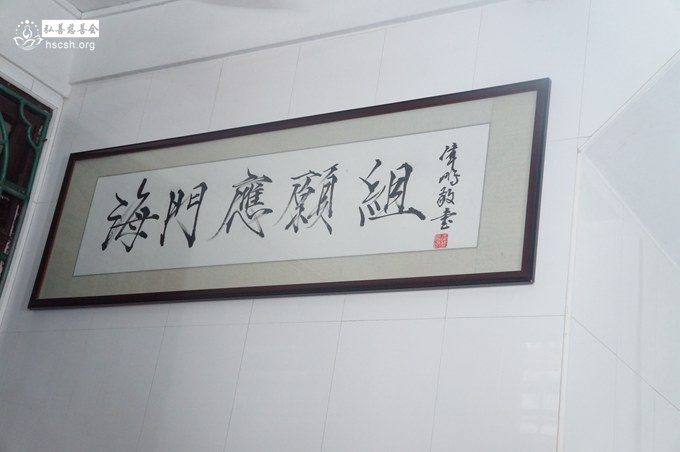 弘善慈善会
hscsh.org
海門應願組
鵬敬書